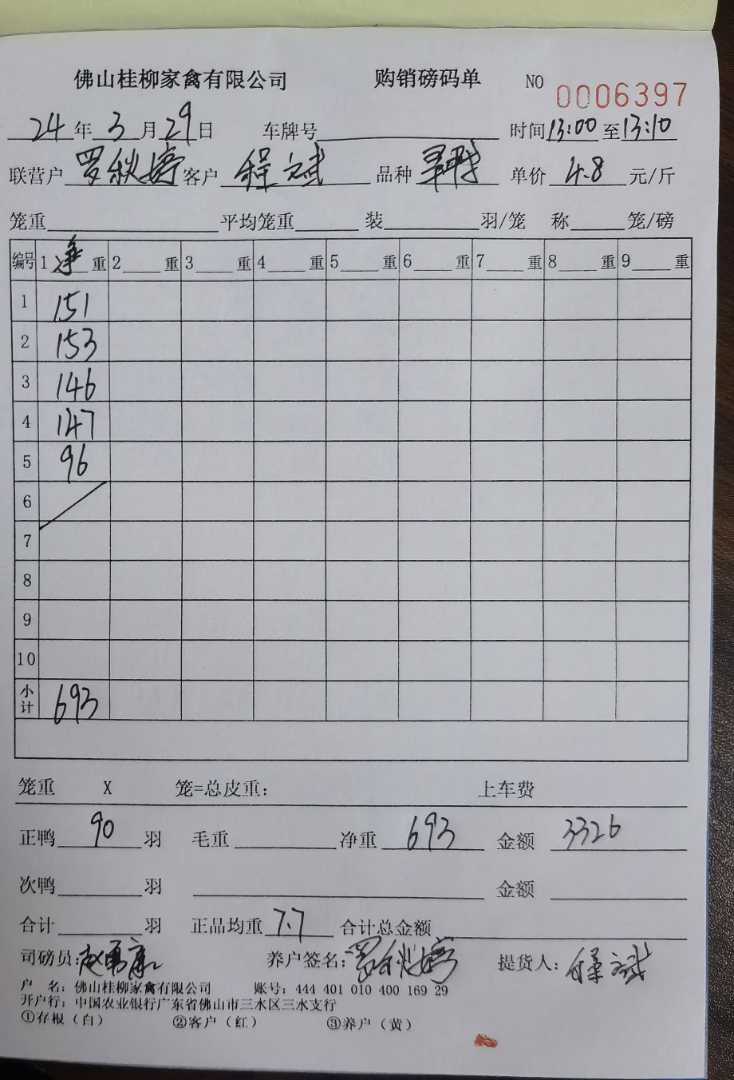 佛山桂柳家禽有限公司 购销磅码单 NO 0006397
24年3月29日 车牌号 时间13:00至13:10
联营户罗秋婷客户程斌 品种 单价4.8元/斤
笼重 平均笼重 装 羽/笼 称 笼/磅
编号 1净重 2 重 3 重 4 重 5 重 6 重 7 重 8 重 9 重
1 151
2 153
3 146
4 147
5 96
6
7
8
9
10
小计 693
笼重 X 笼=总皮重: 上车费
正鸭90羽 毛重 净重693 金额3326
次鸭 羽 金额
合计 羽 正品均重7.7 合计总金额
司磅员: 养户签名:罗秋婷 提货人:程斌
户 名: 佛山桂柳家禽有限公司 账号: 444 401 010 400 169 29
开户行: 中国农业银行广东省佛山市三水区三水支行
①存根(白) ②客户(红) ③养户(黄)